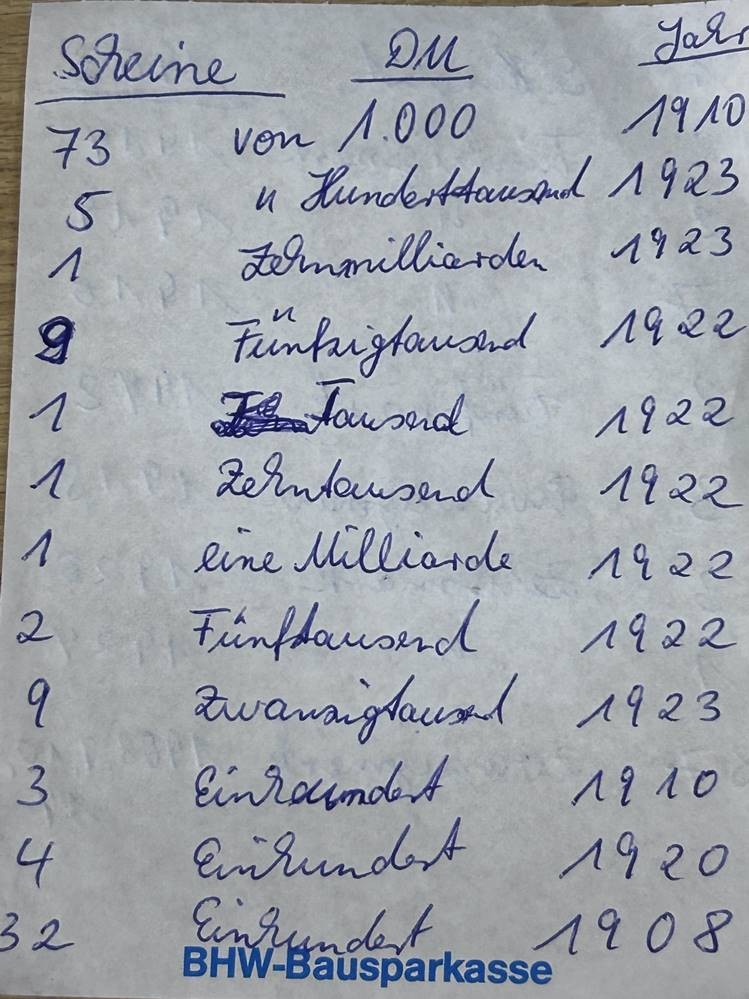 Scheine DM Jahr
73 von 1.000 1910
5 " Hunderttausend 1923
1 Zehnmilliarden 1923
9 " Fünfzigtausend 1922
1 Tausend 1922
1 Zehntausend 1922
1 eine Milliarde 1922
2 Fünftausend 1922
9 Zwanzigtausend 1923
3 Einhundert 1910
4 Einhundert 1920
32 Einhundert 1908
BHW-Bausparkasse